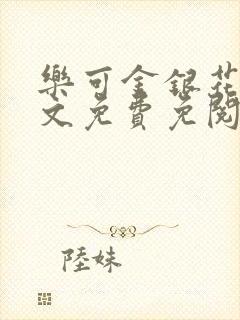 樂可金銀花
文免費免閱
陸妹